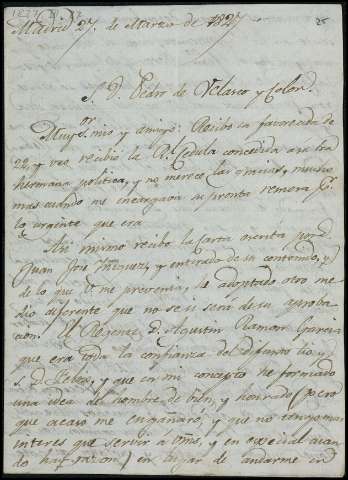 Madrid 27,, de Marzo de 1827
25
S. D. Pedro de Velasco y Colon.
Muy Sor. mio y amigo: Recibo su favorecida de
22, y veo recibió la Rl. Cedula concedida a su tra
hermana politica, y no merece las gracias, mucho
mas cuando me encargava su pronta remesa pr.
lo urgente que era
Asi mismo recibo la Carta escrita por D.
Juan Jose Yñiguez, y enterado de su contenido, y
de lo que V. me previene, he adoptado otro me
dio diferente que no se si será de su aproba
cion. El Regente D. Agustin Ramon Garcia
que era toda la confianza del difunto tio, y
S. D. Felix, y que en mi concepto he formado
una idea del hombre de bien, y honrado (pero
que acaso me engañaré, y que no tengo mas
interes que servir a Vms, y en especial cuan
do hay razon) en lugar de andarme en